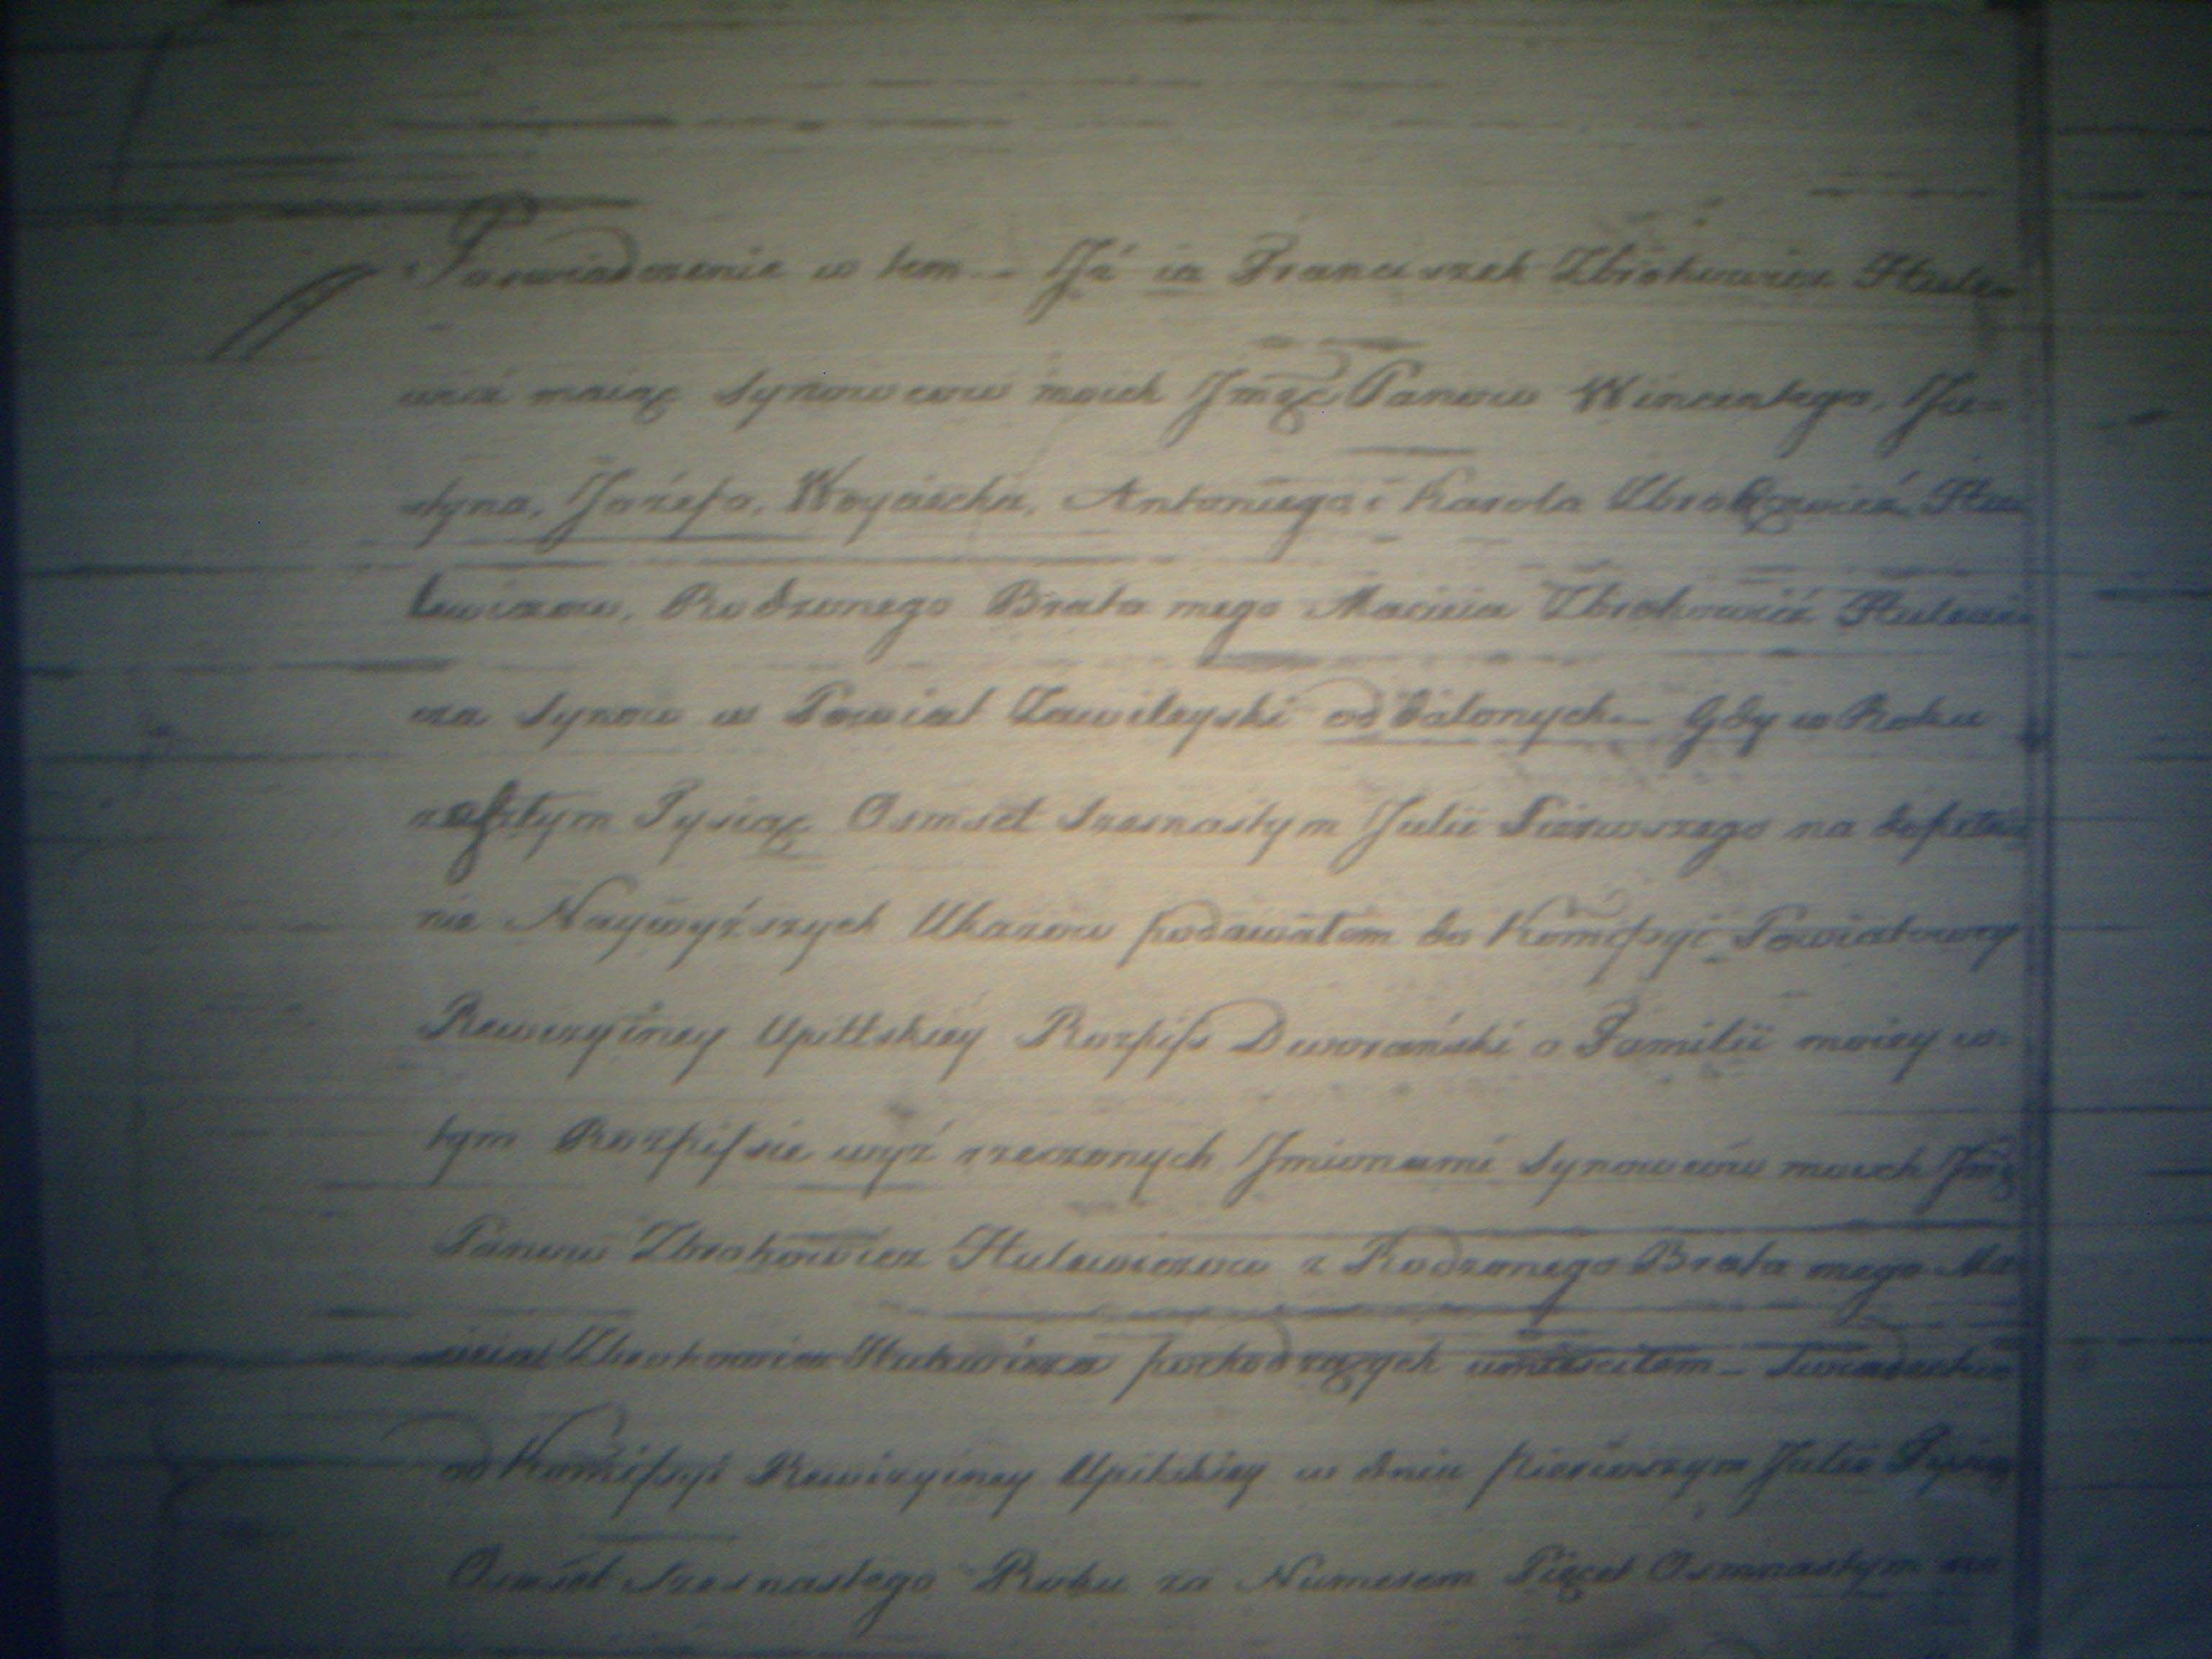 Poswiadczenie w tem — Iż ia Franciszek Zbrokowicz Stule-
wicz maiąc Synowcow moich Jmść Panow Wincentego, Ju-
styna, Józefa, Woyciecha, Antoniego i Karola Zbrokowicz Stu
lewiczow, Rodzonego Brata mego Macieia Zbrokowicz Stulewi-
cza Synow w Powiat Zawileyski oddalonych — Gdy w Roku
zeszłym Tysiąc Osmset Szesnastym Julii Pierwszego na dopełnie
nie Naywyższych Ukazow podawałem do Komissyi Powiatowey
Rewizyiney Upittskiey Rozpiss Dworański o Familii moiey w
tym Rozpissie wyż rzeczonych Jmionami Synowców moich Jmć
Panow Zbrokowicz Stulewiczow z Rodzonego Brata mego Ma
cieia Zbrokowicz Stulewicza pochodzących umieściłem — Swiadectwo
od Komissyi Rewizyiney Upitskiey w dniu pierwszym Julii Tysiąc
Osmset Szesnastego Roku za Numerem Pięćset Osmnastym